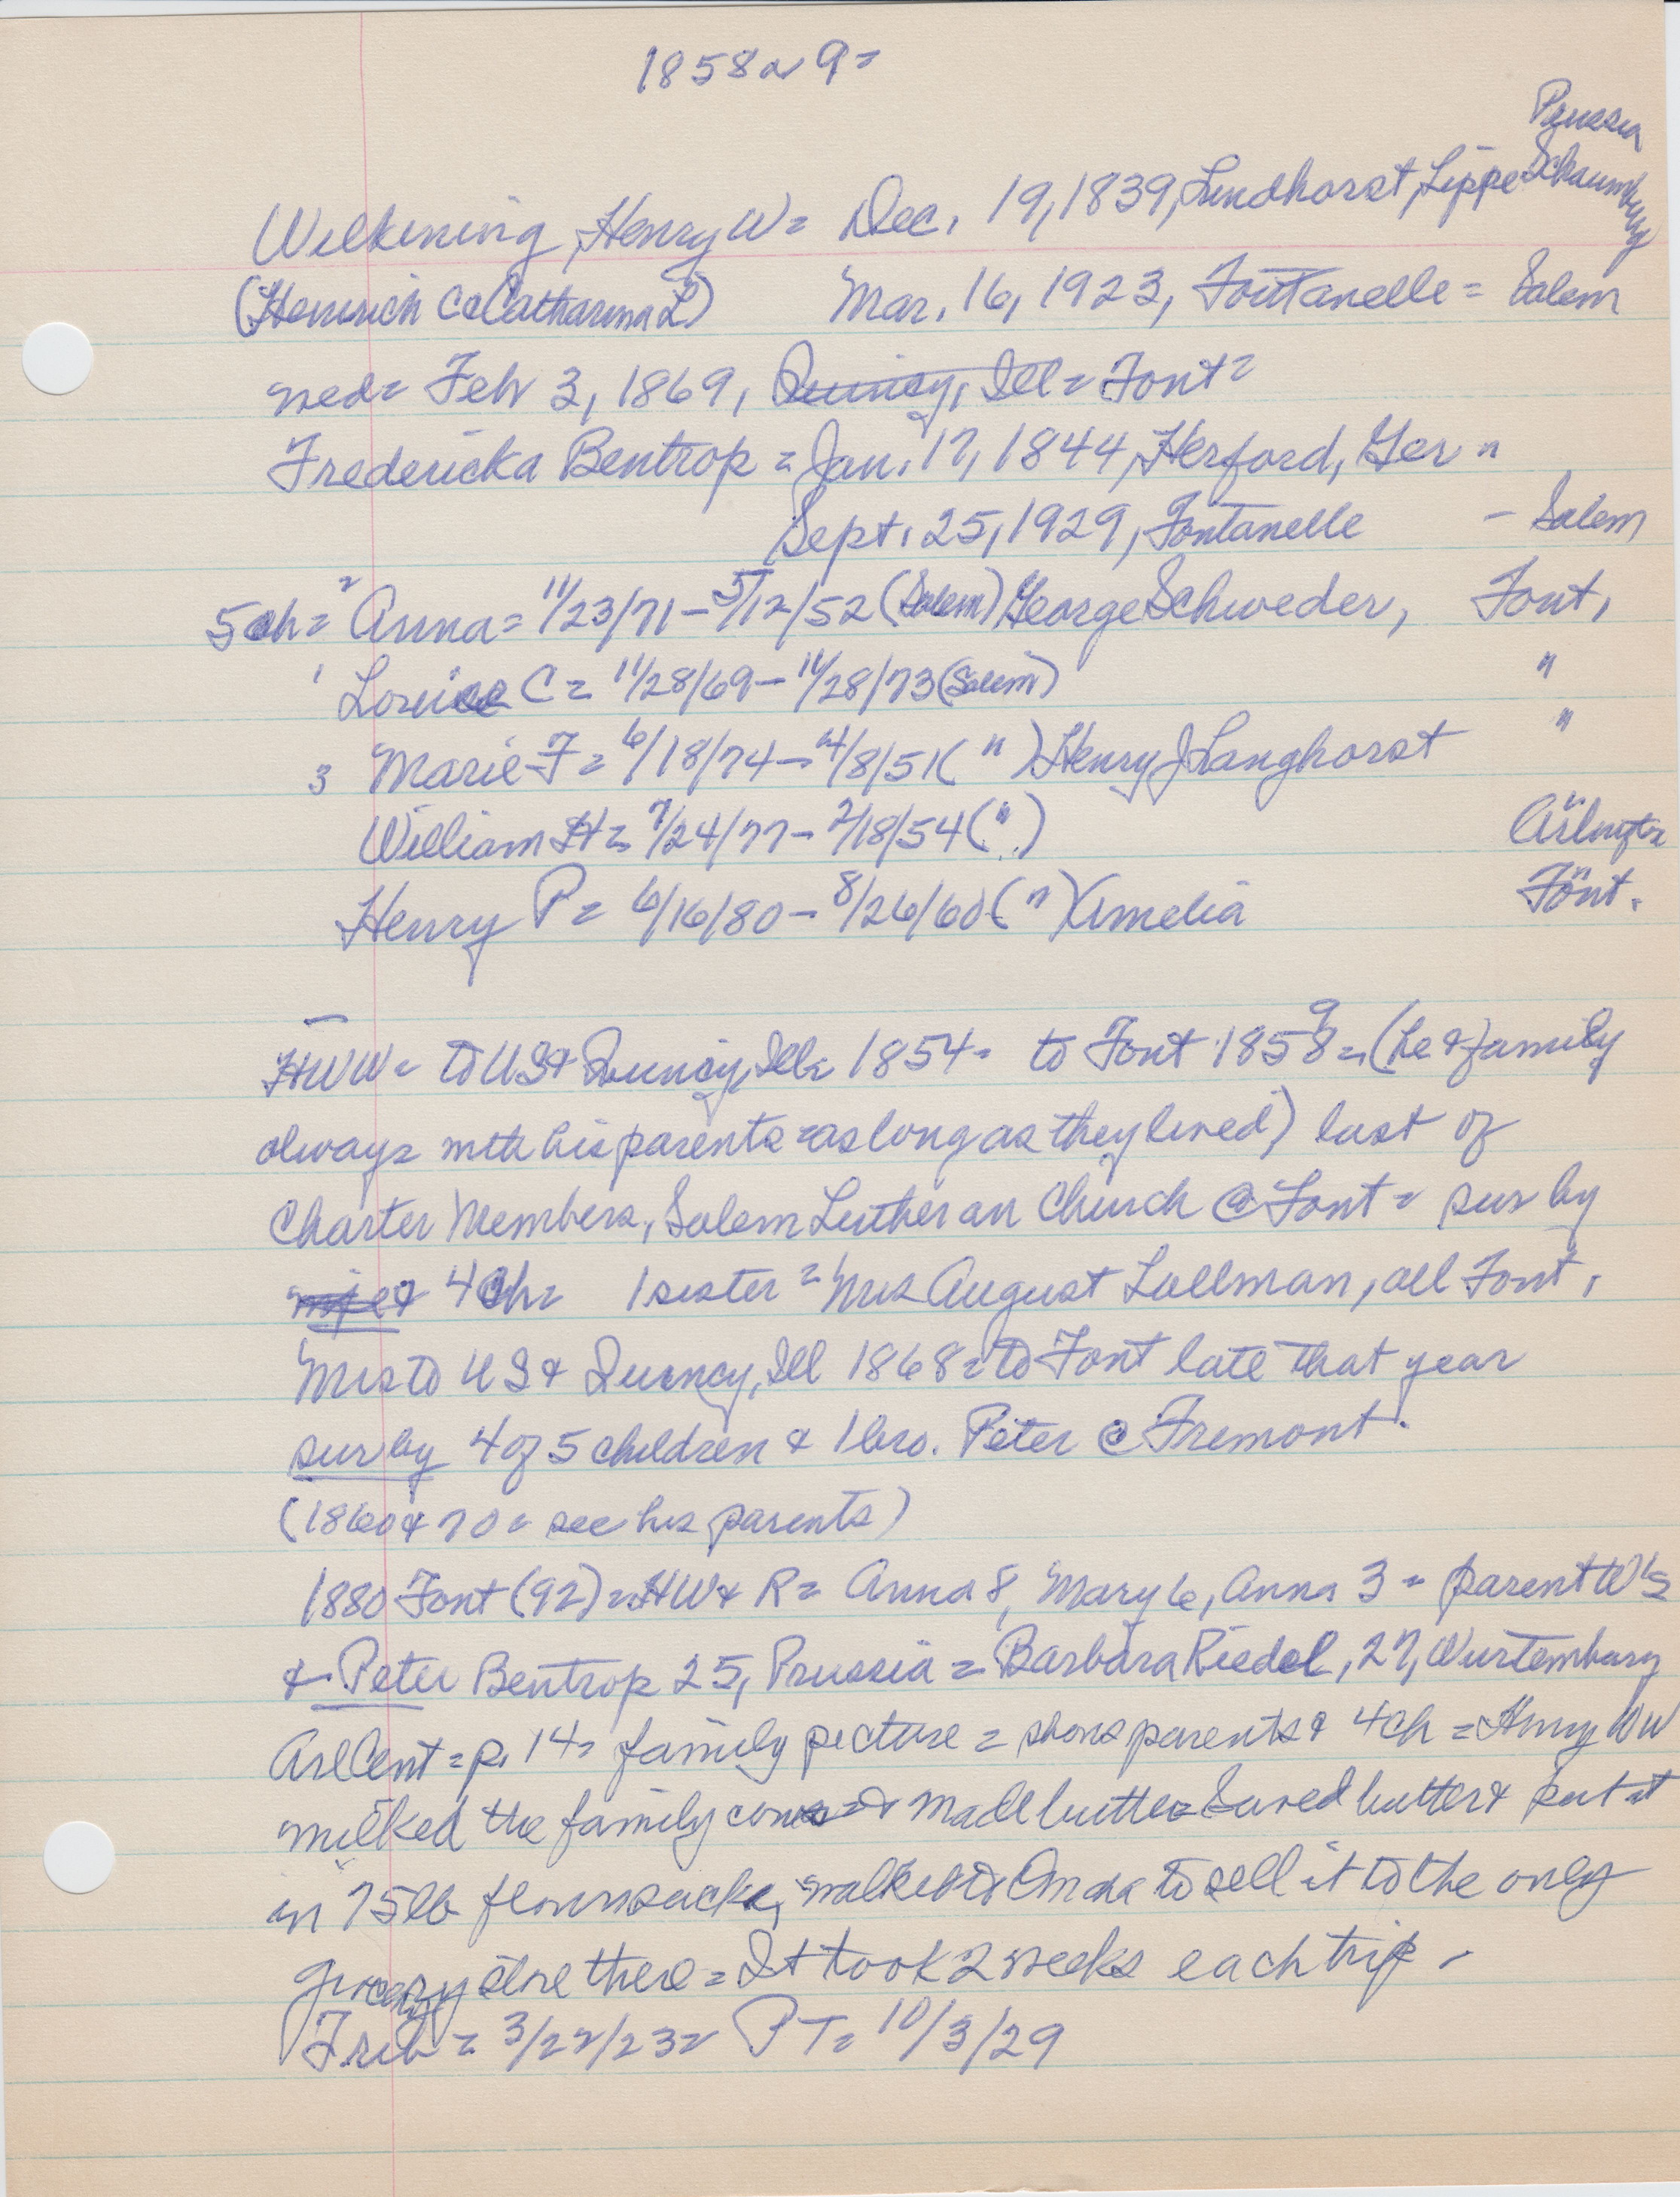 1858 or 9=
Prussia
Wilkening, Henry W= Dec. 19, 1839, Lindhorst, Lippe Schaumburg
(Heinrich C & Catharina L) Mar. 16, 1923, Fontanelle = Salem
med= Feb 3, 1869, Quincy, Ill= Font=
Fredericka Bentrop = Jan. 17, 1844, Herford, Ger "
Sept. 25, 1929, Fontanelle - Salem
5 ch= 2 Anna= 11/23/71-5/12/52 (Salem) George Schweder, Font,
1 Louise C= 11/28/69-11/28/73 (Salem) "
3 Marie F= 6/18/74-4/8/51 ( " ) Henry J Langhorst "
William H= 7/24/77-2/18/54 ( " ) Arlington
Henry P= 6/16/80-8/26/60 ( " ) (Amelia Font.
HWW= to US & Quincy, Ill= 1854= to Font 1858 9= (he & family
always with his parents = as long as they lived) last of
Charter Members, Salem Lutheran Church @ Font= sur by
wife & 4 ch= 1 sister= Mrs August Lallman, all Font,
Mrs to US & Quincy, Ill 1868= to Font late that year
sur by 4 of 5 children & 1 bro. Peter @ Fremont.
(1860 & 70= see his parents)
1880 Font (92)= HW & R= Anna 8, Mary 6, Anna 3= parent W's
& Peter Bentrop 25, Prussia= Barbara Riedel, 27, Wurtemburg
ArlCent= p. 14= family picture= shows parents & 4 ch= Henry WW
milked the family cows= & made butter= Saved butter & put it
in 75 lb flour sacks, walked to Omaha to sell it to the only
grocery store there= It took 2 weeks each trip -
Trib= 3/22/23= PT= 10/3/29